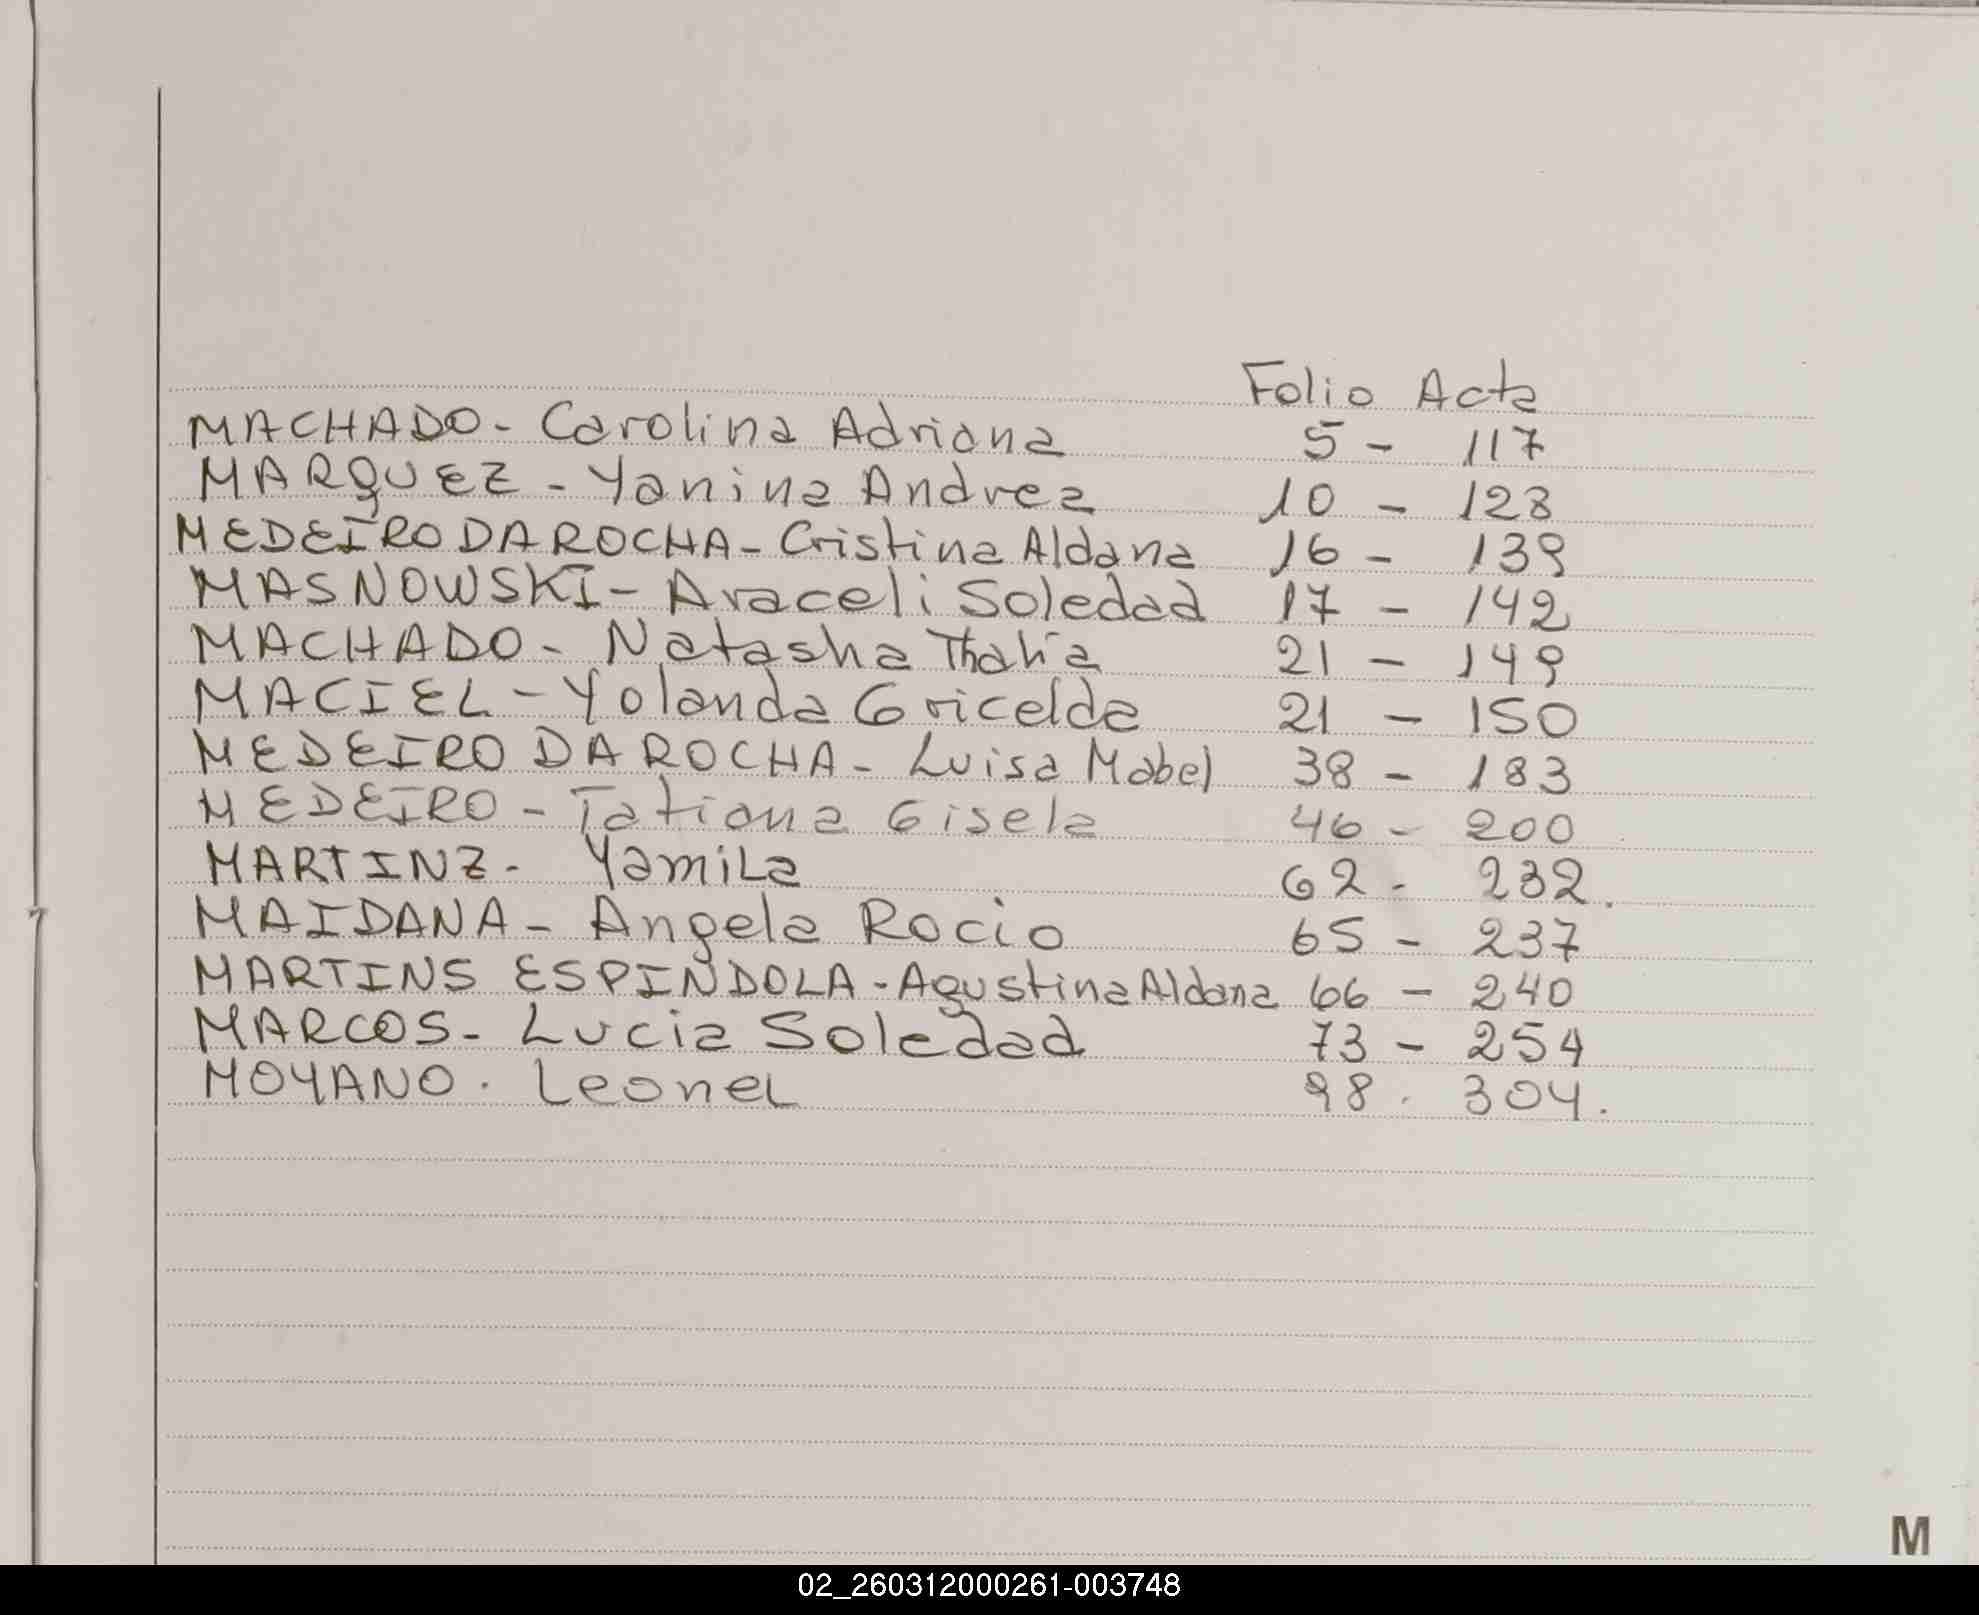 Folio Acta
MACHADO - Carolina Adriana 5 - 117
MARQUEZ - Yanina Andrea 10 - 128
MEDEIRO DA ROCHA - Cristina Aldana 16 - 139
MASNOWSKI - Araceli Soledad 17 - 142
MACHADO - Natasha Thalía 21 - 149
MACIEL - Yolanda Gricelda 21 - 150
MEDEIRO DA ROCHA - Luisa Mabel 38 - 183
MEDEIRO - Tatiana Gisela 46 - 200
MARTINZ - Yamila 62 - 232.
MAIDANA - Angela Rocio 65 - 237
MARTINS ESPINDOLA - Agustina Aldana 66 - 240
MARCOS - Lucia Soledad 73 - 254
MOYANO . Leonel 98 . 304.
M
02_260312000261-003748